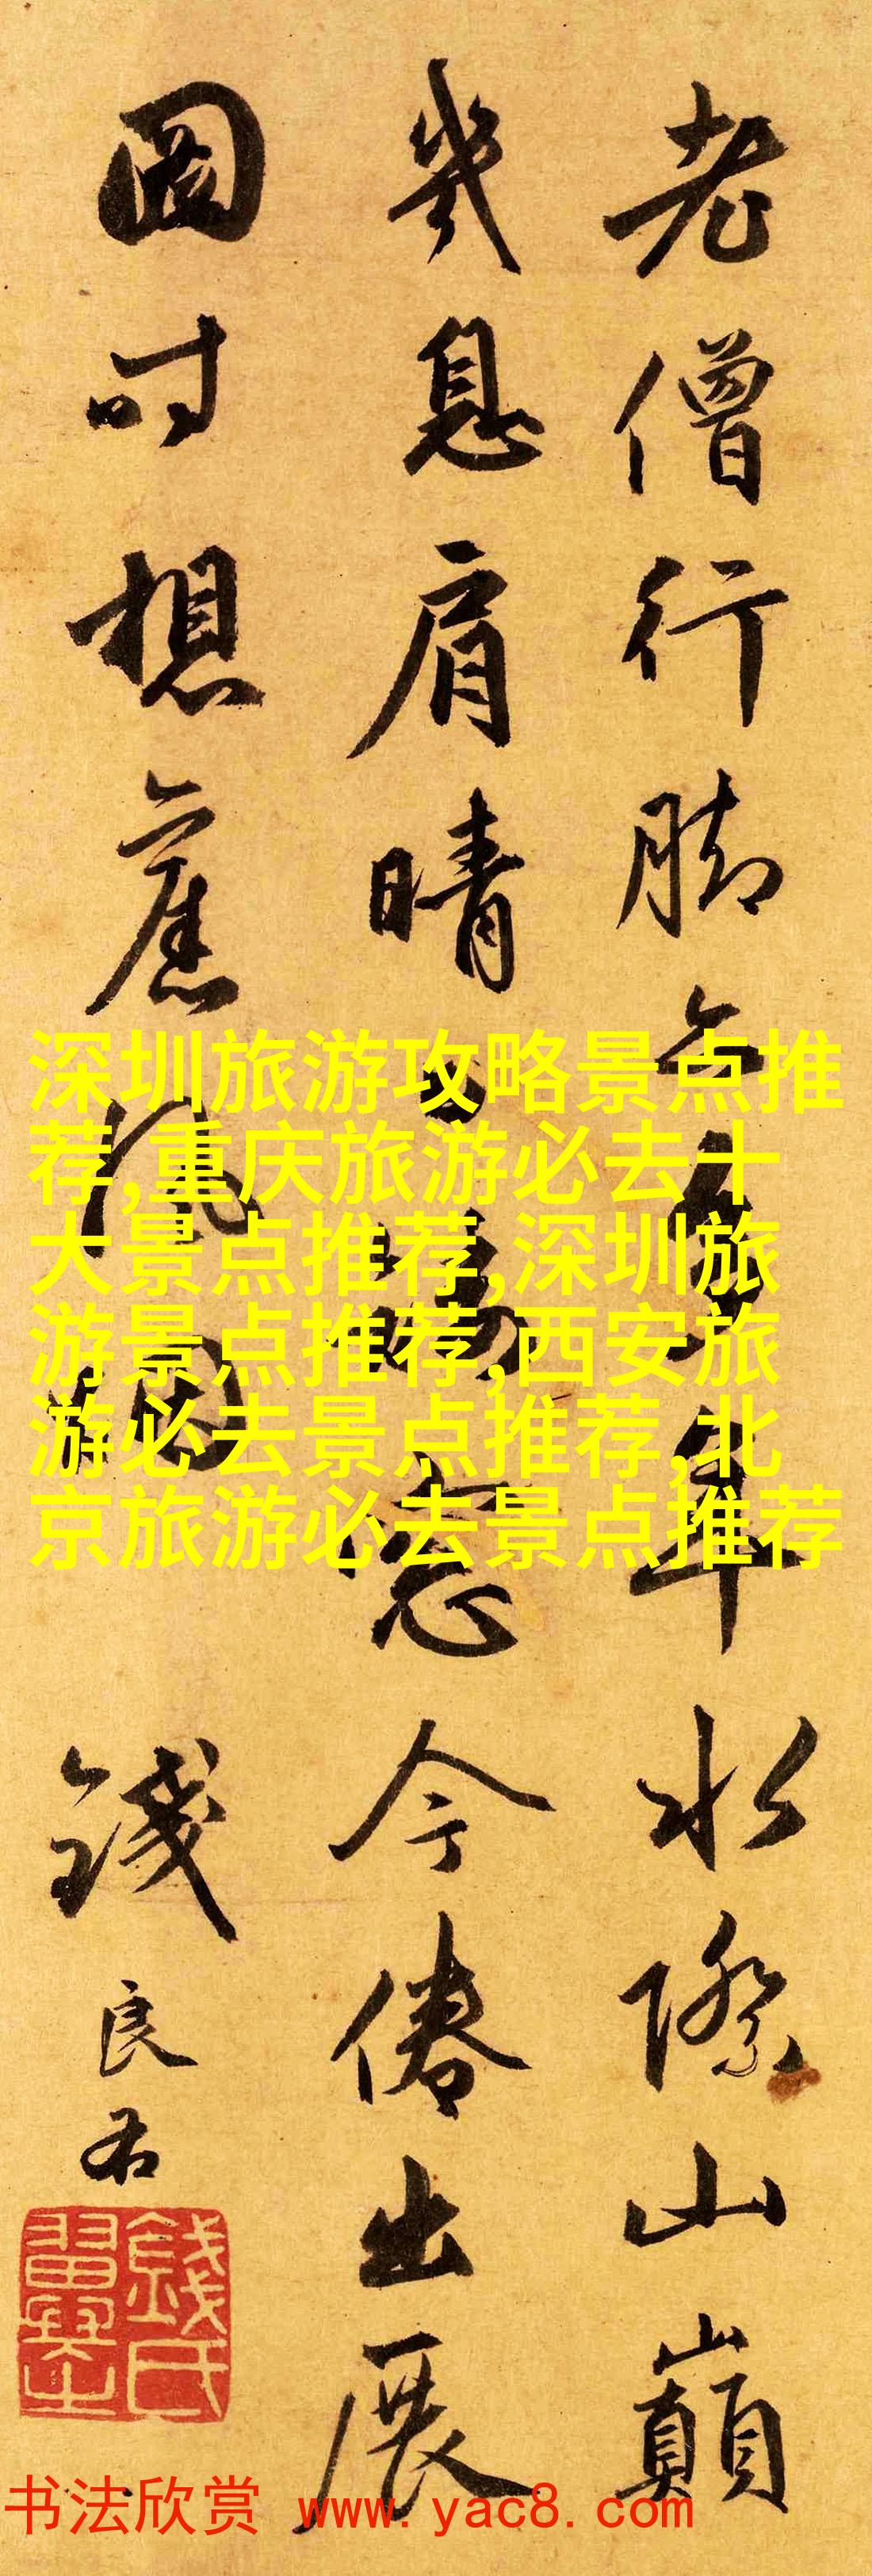 老僧行脚六年水際山巔
幾息肩晴窓今倦出展
圖時想舊風烟
錢良右
錢氏翼之
深圳旅游攻略景点推
荐,重庆旅游必去十
大景点推荐,深圳旅
游景点推荐,西安旅
游必去景点推荐,北
京旅游必去景点推荐
书法欣赏 www.yac8.com